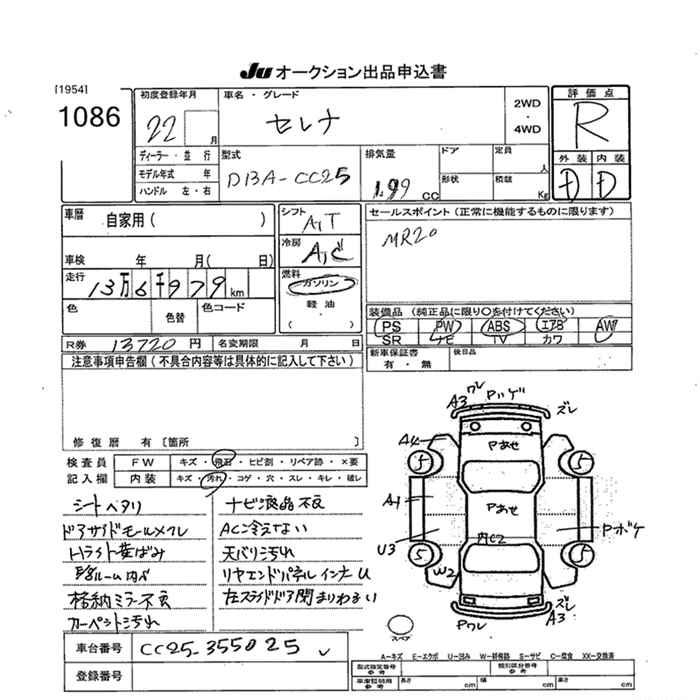 JU オークション出品申込書
[1954]
1086
初度登録年月
22 月
車名・グレード
セレナ
2WD
・
4WD
評価点
R
ディーラー・並行
モデル年式 年
ハンドル 左・右
型式
DBA-CC25
排気量
1.99 CC
ドア
定員 人
形状
積載 Kg
外装 内装
D D
車歴
自家用( )
シフト
A,T
セールスポイント(正常に機能するものに限ります)
MR20
車検 年 月( 日)
冷房
A,C
走行
13万6千979km
燃料
ガソリン
軽油
( )
色
色替
色コード
装備品(純正品に限り○を付けてください)
PS PW ABS エアB AW
SR ナビ TV カワ
R券 13720円
名変期限 月 日
新車保証書
有・無
後日品
注意事項申告欄(不具合内容等は具体的に記入して下さい)
修復歴 有〔箇所 〕
検査員 FW キズ・飛石・ヒビ割・リペア跡・×要
記入欄 内装 キズ・汚れ・コゲ・穴・スレ・キレ・破レ
シートヘタリ
ドアサイドモールメクレ
Hライト黄ばみ
格納ミラー不良
カーペント汚れ
ナビ液晶不良
AC冷えない
天バリ汚れ
リヤエンドパネルインナーU
左スライドドア閉まりわるい
A3 ワレ Pハゲ ズレ
A4
Pあせ
5 5
A1
Pあせ
U3
内ピラ
Pボケ
5 5
W2
Pワレ
ズレ
A3
スペア
車台番号 CC25-355025
登録番号
A-キズ E-エクボ U-凹み W-補修跡 S-サビ C-腐食 XX-交換済
型式指定番号
参考
類別区分番号
参考
車庫証明
参考
長さ cm 幅 cm 高さ cm